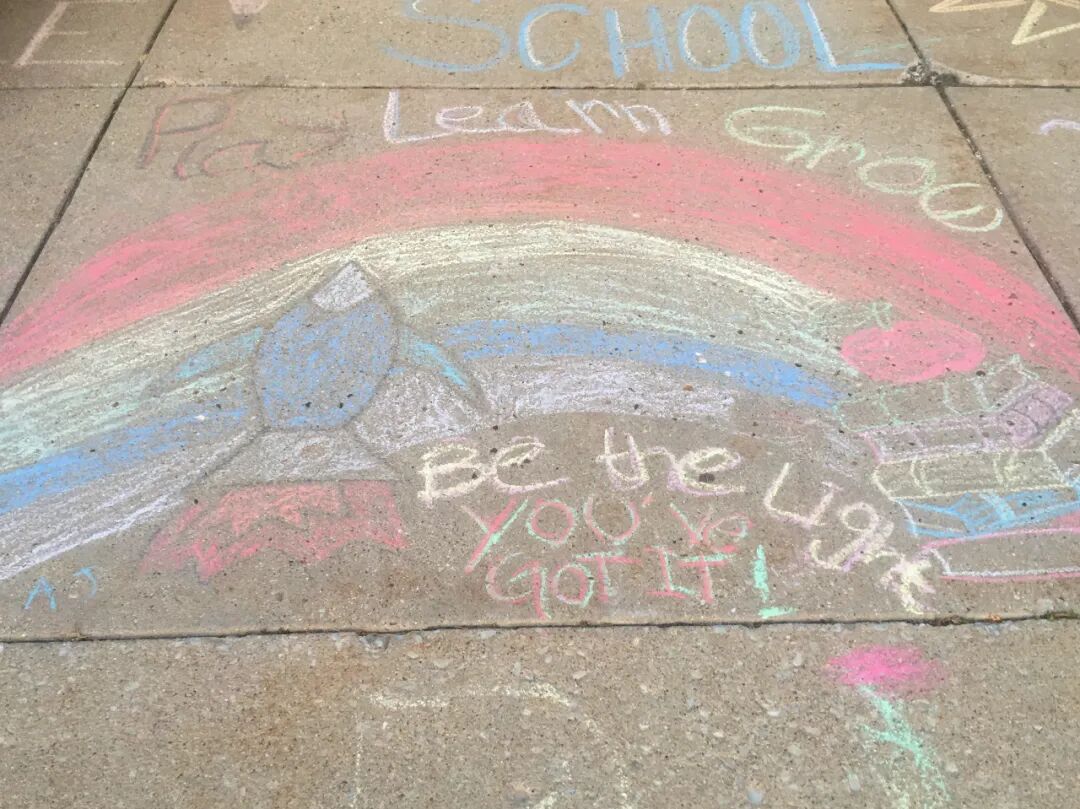 SCHOOL
Play Learn Grow
Be the Light
YOU'Ve
GOT IT!
AJ